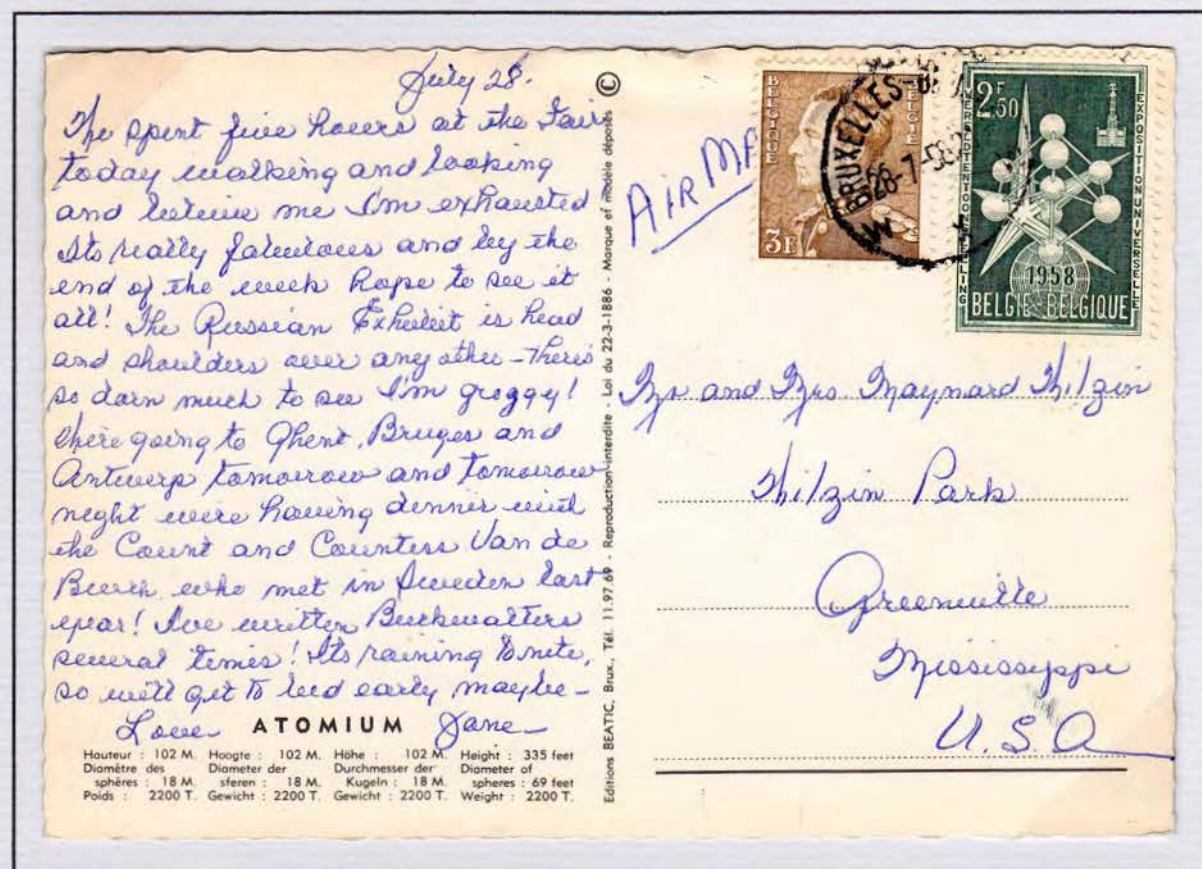 July 28.
We spent five hours at the Fair
today walking and looking
and believe me I'm exhausted
Its really fabulous and by the
end of the week hope to see it
all! The Russian Exhibit is head
and shoulders over any other - There's
so darn much to see I'm groggy!
We're going to Ghent, Bruges and
Antwerp tomorrow and tomorrow
night were having dinner with
the Count and Countess Van de
who met in Sweden last
year! Ive written Buckwalters
several times! Its raining to nite,
so we'll get to bed early maybe -
Love Jane
ATOMIUM
Hauteur : 102 M.
Diamètre des
sphères : 18 M.
Poids : 2200 T.
Hoogte : 102 M.
Diameter der
sferen : 18 M.
Gewicht : 2200 T.
Höhe : 102 M.
Durchmesser der
Kugeln : 18 M.
Gewicht : 2200 T.
Height : 335 feet
Diameter of
spheres : 69 feet
Weight : 2200 T.
Editions BEATIC, Brux., Tél. 11.97.69 - Reproduction interdite - Loi du 22-3-1886 - Marque et modèle déposés ©
AIR MA
BELGIQUE
BELGIE
3F
BRUXELLES
28-7-58
2F50
WERELDTENTOONSTELLING
EXPOSITION UNIVERSELLE
1958
BELGIE-BELGIQUE
Mr and Mrs. Maynard
Park
Greenville
Mississippi
U.S.A